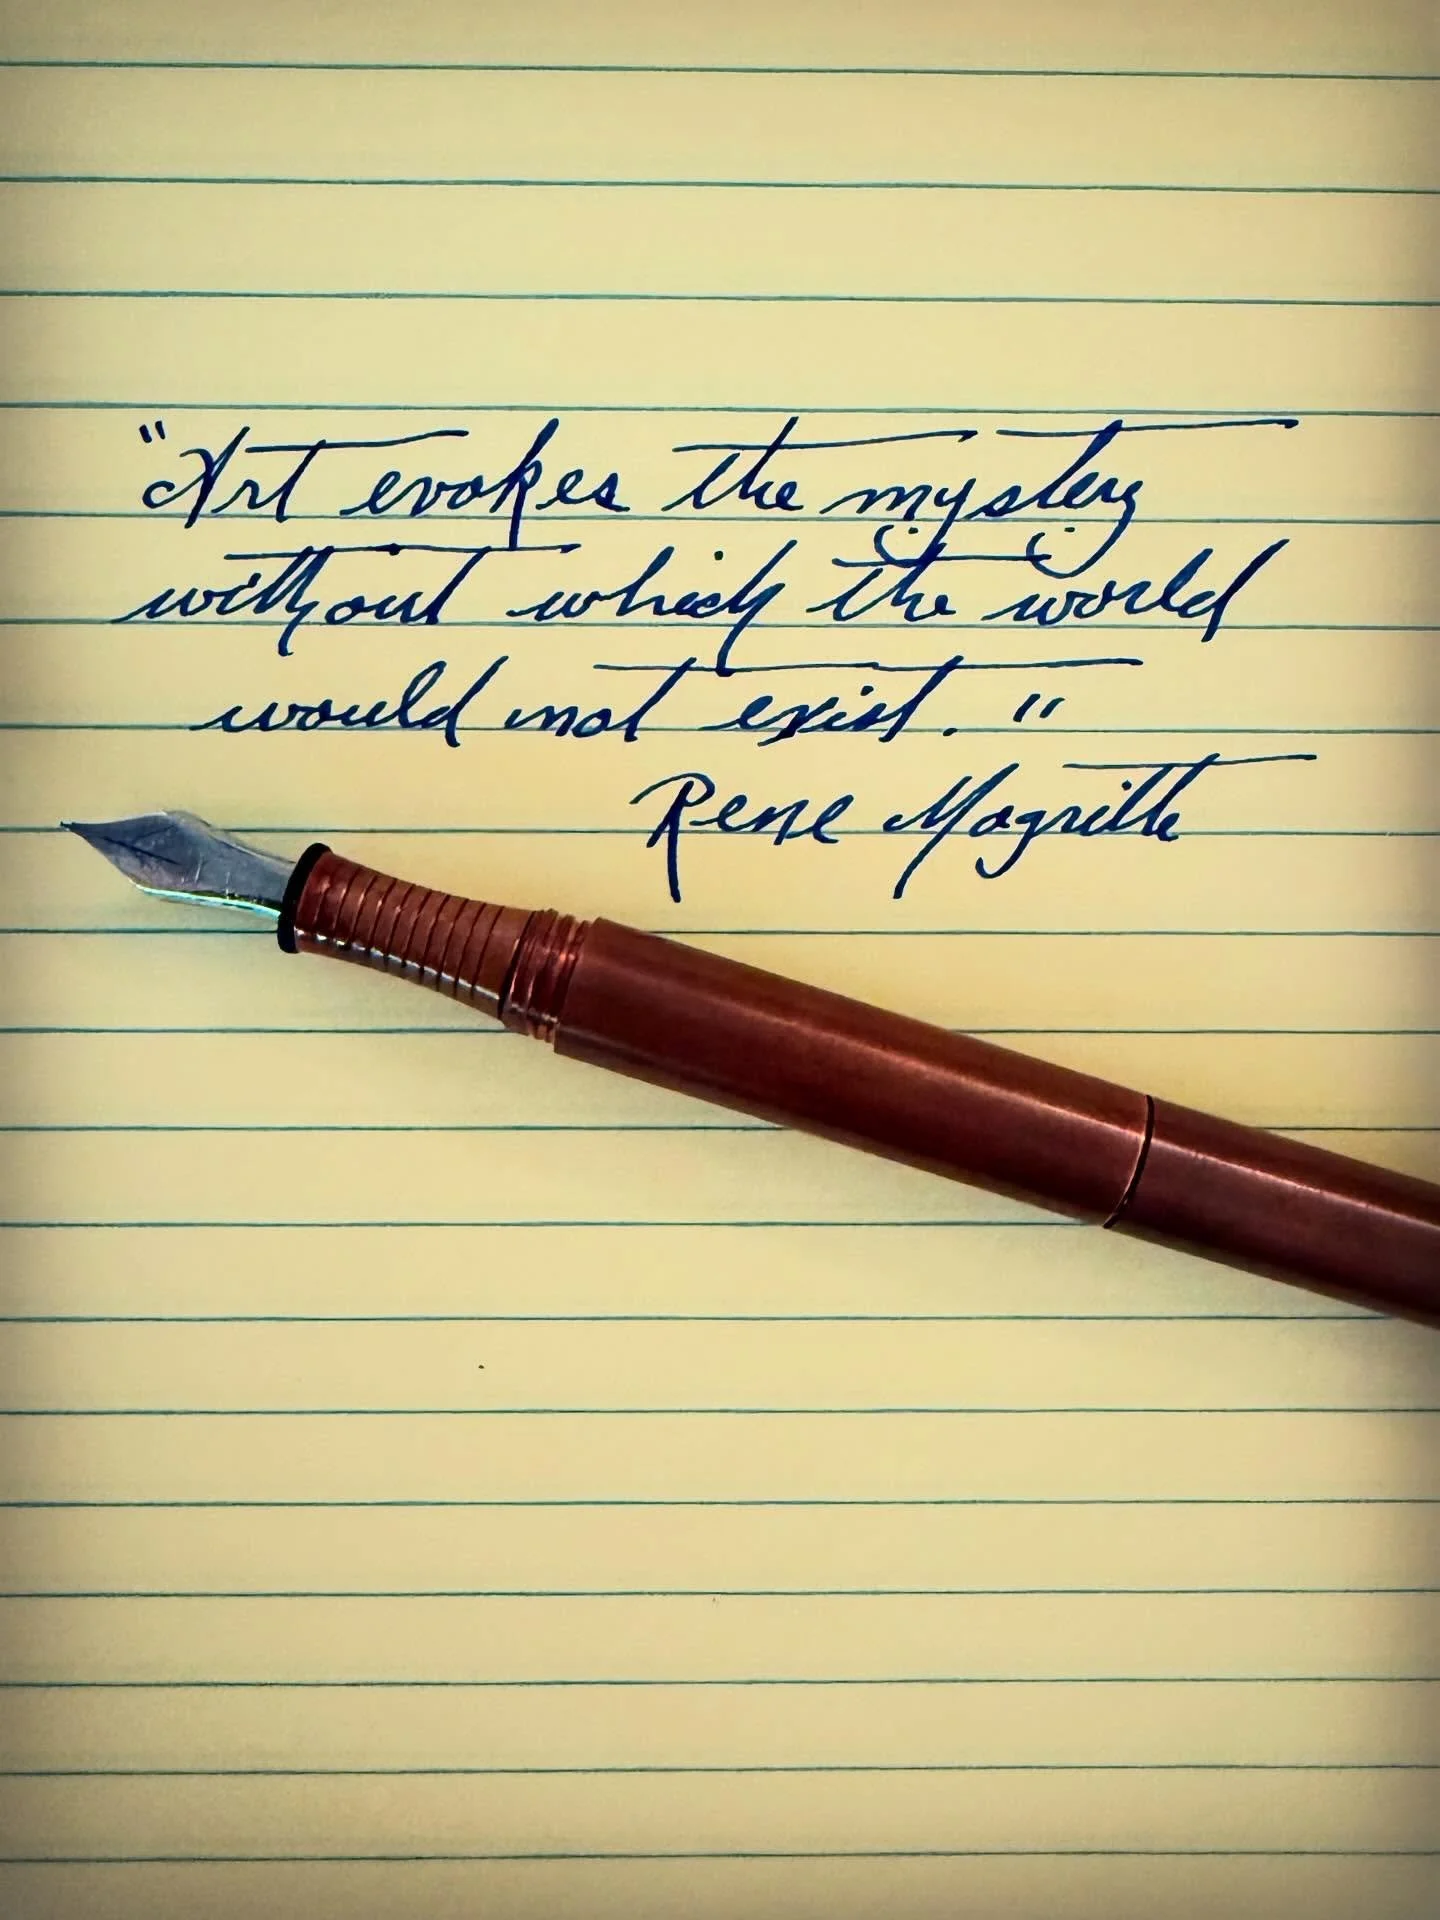 "Art evokes the mystery
without which the world
would not exist."
Rene Magritte